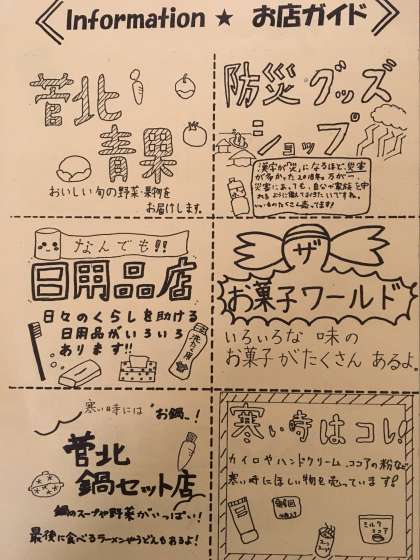 Information ★ お店ガイド
菅北
青果
おいしい旬の野菜・果物を
お届けします。
防災グッズ
ショップ
漢字が「災」になるほど、災害
が多かった2018年。万が一
災害にあっても、自分や家族を守れ
るように備えておきたいですね。
いいものたくさん売ってます!
なんでも!!
日用品店
日々のくらしを助ける
日用品がいろいろ
あります!!
ザ
お菓子ワールド
いろいろな 味の
お菓子がたくさん あるよ。
寒い時には "お鍋"!
菅北
鍋セット店
鍋のスープや野菜がいっぱい!
最後に食べるラーメンやうどんもあるよ!
寒い時はコレ!
カイロやハンドクリーム、ココアの粉など
寒い時にほしい物を売っています!
ミルク
ココア